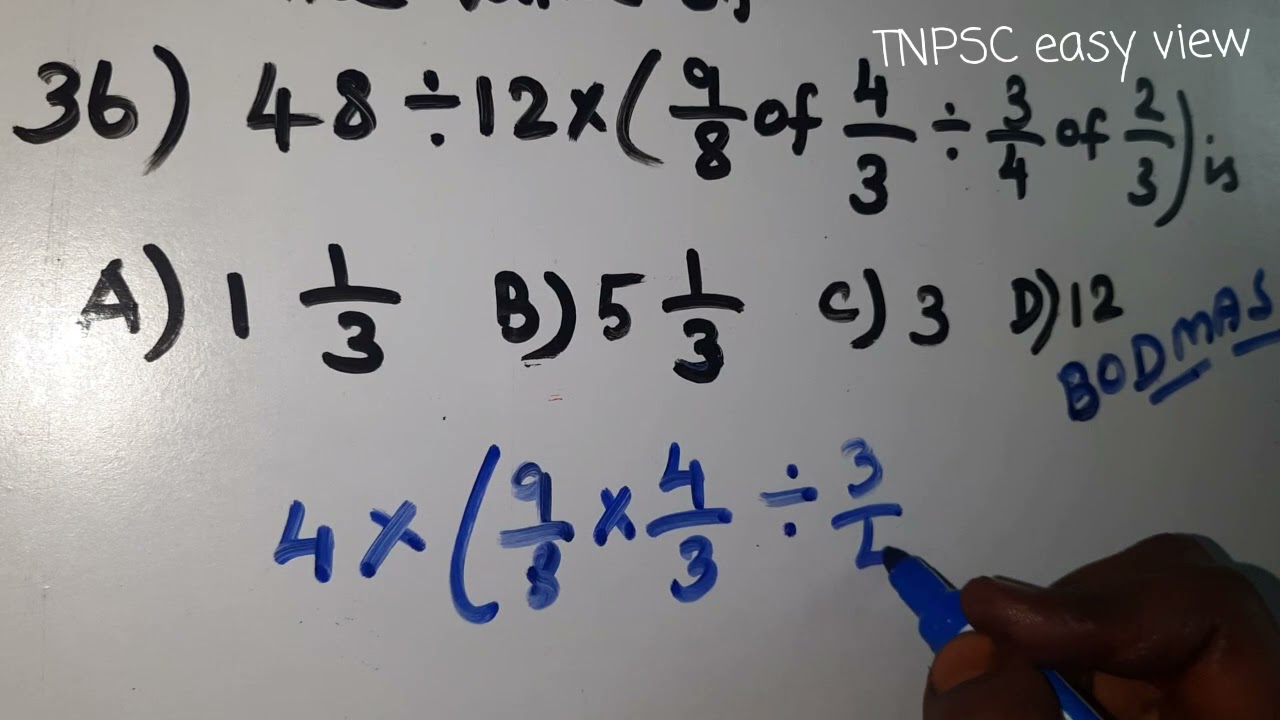 TNPSC easy view
36) 48 ÷ 12 × ( 9/8 of 4/3 ÷ 3/4 of 2/3 ) is
A) 1 1/3 B) 5 1/3 C) 3 D) 12
BODMAS
4 × ( 9/8 × 4/3 ÷ 3/